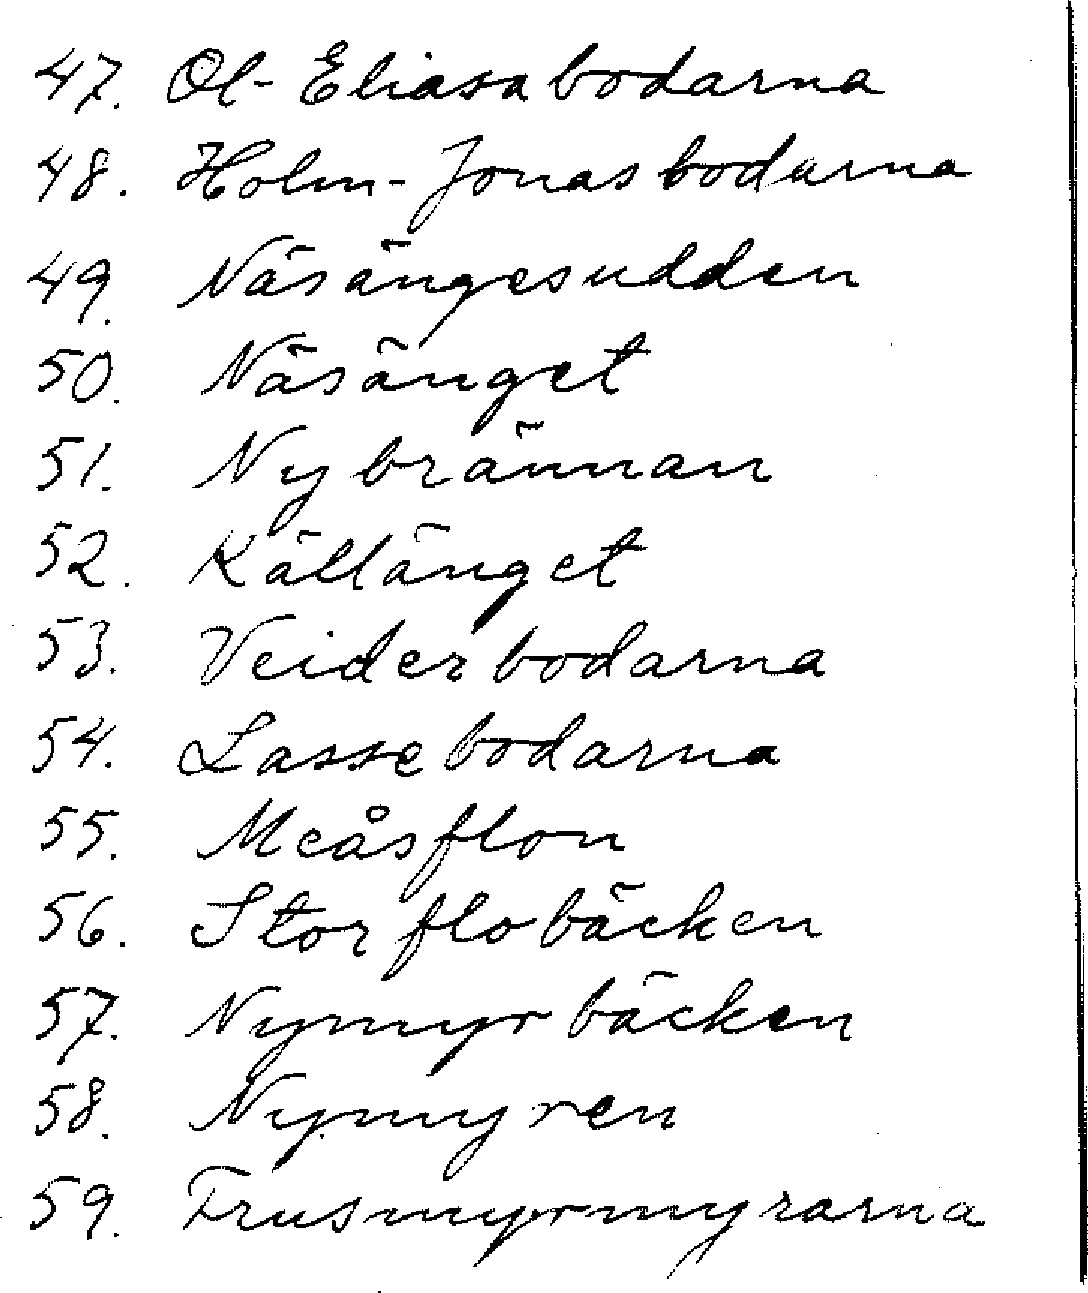 47. Ol-Eliasabodarna
48. Holm-Jonasbodarna
49. Näsängesudden
50. Näsänget
51. Nybrännan
52. Källänget
53. Veiderbodarna
54. Lassebodarna
55. Meåsflon
56. Storflobäcken
57. Nymyrbäcken
58. Nymyren
59. Frusmyrmyrarna